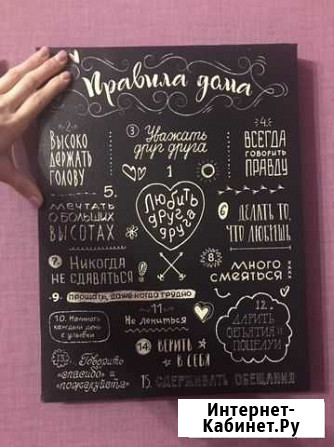 Правила дома
1
Любить
друг
друга
-2-
Высоко
держать
голову
3 Уважать
друг друга
-4-
Всегда
говорить
правду
5.
мечтать
о больших
высотах
6 делать то,
что любишь
7. Никогда
не сдаваться
8.
много
смеяться
-9- прощать, даже когда трудно
10. Начинать
каждый день
с улыбки
-11-
Не лениться
12.
Дарить
объятия и
поцелуи
13. Говорить
"спасибо" и
"пожалуйста"
14. верить
в себя
15. сдерживать обещания
Интернет-
Кабинет.Ру